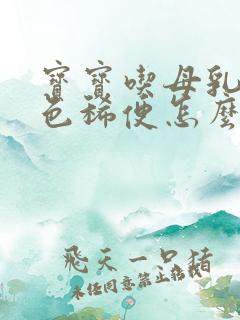 寶寶喫母乳
色稀便怎麼
飛天一只豬
未經同意禁止轉載